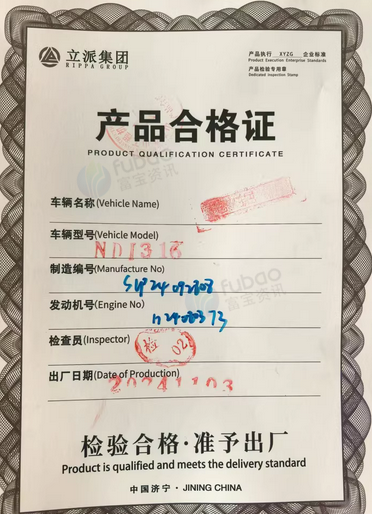 立派集团
NIPPA GROUP
产品执行 XYZG 企业标准
Product Execution Enterprise Standards
产品检验专用章
Dedicated Inspection Stamp
产品合格证
PRODUCT QUALIFICATION CERTIFICATE
fubao
富宝资讯
车辆名称(Vehicle Name)
车辆型号(Vehicle Model)
ND1316
制造编号(Manufacture No)
fubao
富宝资讯
发动机号(Engine No)
检查员(Inspector)
检 02
出厂日期(Date of Production)
20241103
检验合格·准予出厂
Product is qualified and meets the delivery standard
中国济宁·JINING CHINA